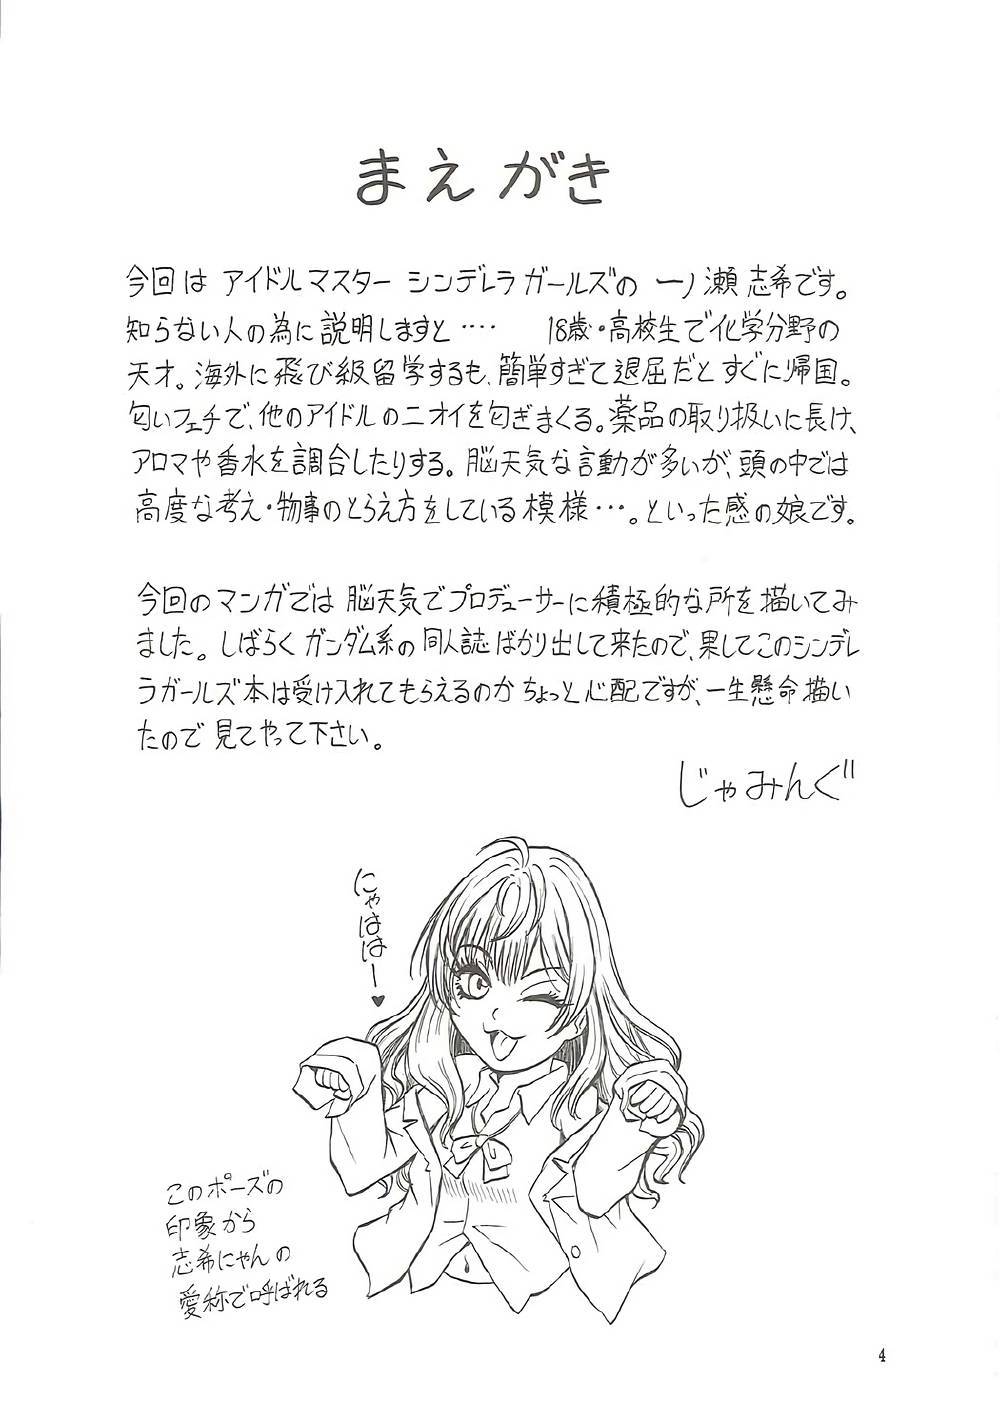 まえがき
今回は アイドルマスター シンデレラガールズの 一ノ瀬 志希です。
知らない人の為に説明しますと‥‥ 18歳・高校生で化学分野の
天才。海外に飛び級留学するも、簡単すぎて退屈だとすぐに帰国。
匂いフェチで、他のアイドルのニオイを匂ぎまくる。薬品の取り扱いに長け、
アロマや香水を調合したりする。脳天気な言動が多いが、頭の中では
高度な考え・物事のとらえ方をしている模様…。といった感の娘です。
今回のマンガでは 脳天気でプロデューサーに積極的な所を描いてみ
ました。しばらく ガンダム系の同人誌ばかり出して来たので、果してこのシンデレ
ラガールズ本は受け入れてもらえるのか ちょっと心配ですが、一生懸命描い
たので 見てやって下さい。
じゃみんぐ
にゃははー♥
このポーズの
印象から
志希にゃんの
愛称で呼ばれる
4